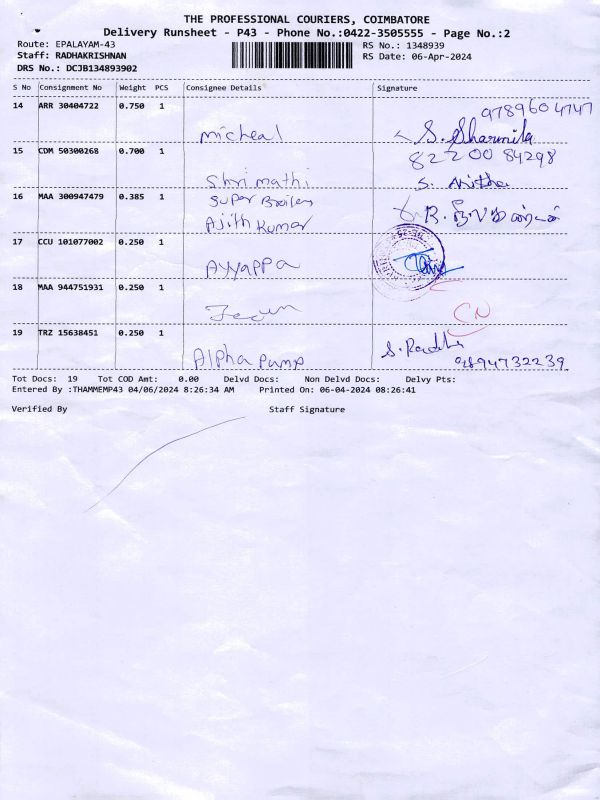 THE PROFESSIONAL COURIERS, COIMBATORE
Delivery Runsheet - P43 - Phone No.:0422-3505555 - Page No.:2
Route: EPALAYAM-43 RS No.: 1348939
Staff: RADHAKRISHNAN RS Date: 06-Apr-2024
DRS No.: DCJB134893902
S No Consignment No Weight PCS Consignee Details Signature
14 ARR 30404722 0.750 1 9789604747
micheal S. Sharmila
15 CDM 50300268 0.700 1 82200 84298
Shri mathi S.
16 MAA 300947479 0.385 1 Super Broilers
Ajith Kumar R.
17 CCU 101077002 0.250 1
Ayyappa
18 MAA 944751931 0.250 1
CN
19 TRZ 15638451 0.250 1 S. Radha
Alpha Pump 9894732239
Tot Docs: 19 Tot COD Amt: 0.00 Delvd Docs: Non Delvd Docs: Delvy Pts:
Entered By :THAMMEMP43 04/06/2024 8:26:34 AM Printed On: 06-04-2024 08:26:41
Verified By Staff Signature